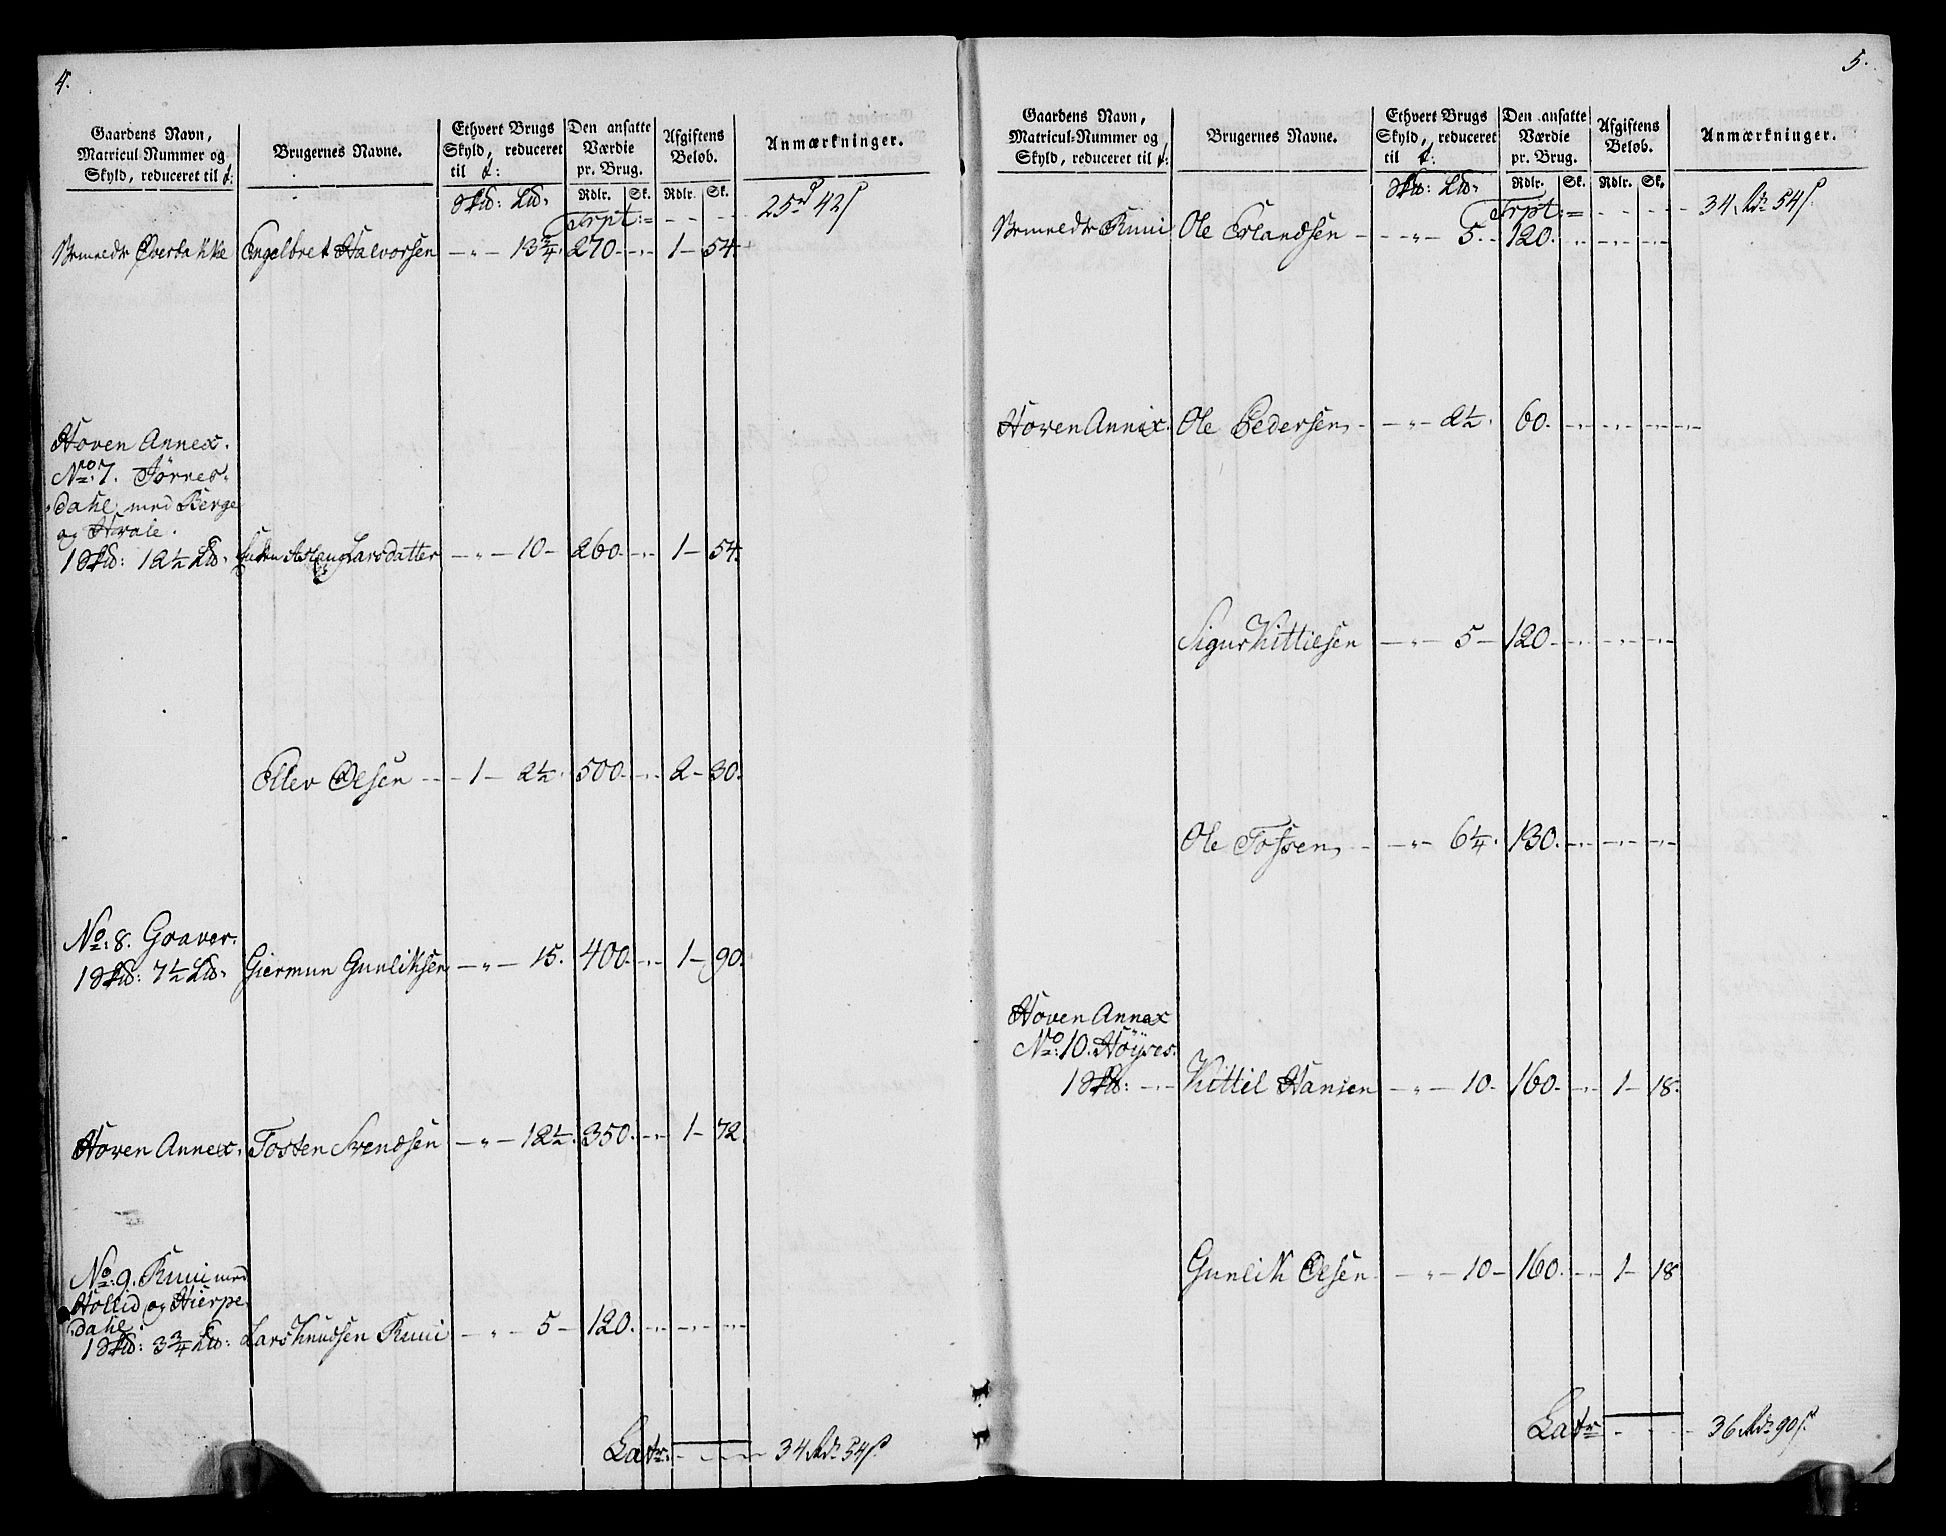 4.
Gaardens Navn,
Matricul-Nummer og
Skyld, reduceret til
Brugernes Navne.
Ethvert Brugs
Skyld, reduceret
til
Den ansatte
Værdie
pr. Brug.
Afgiftens
Beløb.
Anmærkninger.
Rdlr. Sk. Rdlr. Sk.
Skd: Ld.
Trpt: 25 rd 42 s
Overbakke Engelbret Halvorsen 13¾ 270. 1 - 54.
Hoven Annex.
No: 7. Tørres-
dahl med Berge
og Hvale.
1 Skd: 12½ Ld. Enken Aslaug Larsdatter 10 - 260 1 - 54.
Ellev Olsen 1 - 2½ 500. 2 - 30.
No: 8. Graver.
1 Skd: 7½ Ld. Giermun Gunliksen 15. 400. 1 - 90.
Hoven Annex. Tosten Svendsen 12½ 350. 1 - 72.
No: 9. Ruui med
Hollid og Hierpe-
dahl
1 Skd: 3¾ Ld: Lars Knudsen Ruui 5 - 120.
Latr: 34 Rdr 54 s
5.
Gaardens Navn,
Matricul-Nummer og
Skyld, reduceret til
Brugernes Navne.
Ethvert Brugs
Skyld, reduceret
til
Den ansatte
Værdie
pr. Brug.
Afgiftens
Beløb.
Anmærkninger.
Rdlr. Sk. Rdlr. Sk.
Skd: Ld.
Trpt: 34 Rdr 54 s
Ruui Ole Erlandsen 5. 120.
Hoven Annex. Ole Pedersen 2½. 60.
Sigur Kittilsen 5 - 120.
Ole Tofsen 6¼. 130.
Hoven Annex
No: 10. Høyses.
1 Skd: Kittil Hansen 10 - 160. 1 - 18.
Gunlik Olsen 10 - 160. 1 - 18
Latr 36 Rdr 90 s.